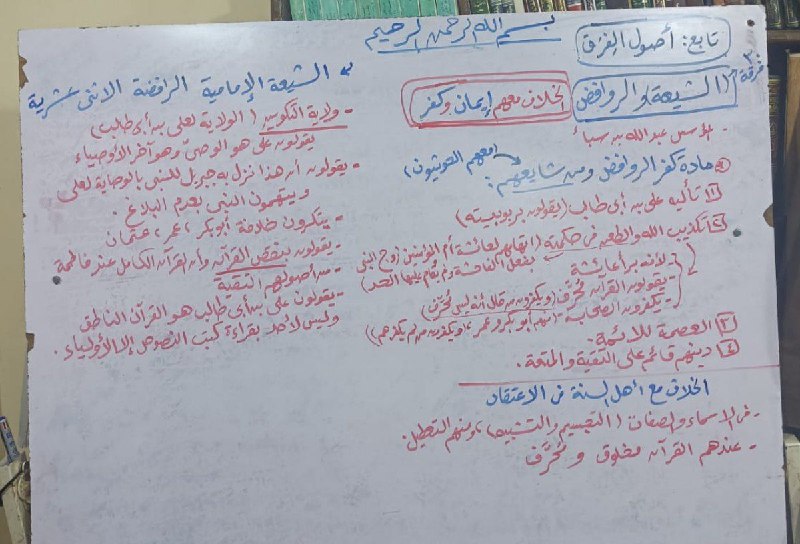 بسم الله الرحمن الرحيم
تابع: أصول الفرق
٣ فرقة
(الشيعة) والروافض
الخلاف معهم إيمان وكفر
- المؤسس عبد الله بن سبأ
مادة كفر الروافض ومن شايعهم: (معهم الحوثيون)
١ تأليه علي بن أبي طالب (يقولون بربوبيته)
٢ تكذيب الله والطعن في حكمته (اتهامهم لعائشة أم المؤمنين زوج النبي
بفعل الفاحشة ولم يقام عليها الحد)
لأنه برأ عائشة
- يقولون القرآن مُحرَّف (ويكفرون من قال أنه ليس مُحرَّف)
- يكفرون الصحابة - منهم أبو بكر وعمر، ويكفرون من لم يكفرهم)
٣ العصمة للأئمة.
٤ دينهم قائم على التقية والمتعة.
الخلاف مع أهل السنة في الاعتقاد
- في الأسماء والصفات (التجسيم والتشبيه)، ومنهم التعطيل.
- عندهم القرآن مخلوق ومُحرَّف
الشيعة الإمامية الرافضة الاثنى عشرية
- ولاية التكوين (الولاية لعلي بن أبي طالب)
يقولون علي هو الوصي وهو آخر الأوصياء
- يقولون أن هذا نزل به جبريل للنبي بالوصاية لعلي
ويتهمون النبي بعدم البلاغ.
- ينكرون خلافة أبو بكر، عمر، عثمان
- يقولون بنقص القرآن وأن القرآن الكامل عند فاطمة
- من أصولهم التقية
- يقولون علي بن أبي طالب هو القرآن الناطق
وليس لأحد بقراءة كتب النصوص إلا الأولياء.